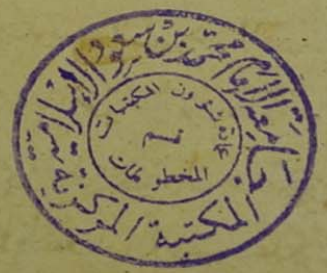 جامعة الإمام محمد بن سعود الإسلامية
المكتبة المركزية
عمادة شؤون المكتبات
قسم
المخطوطات